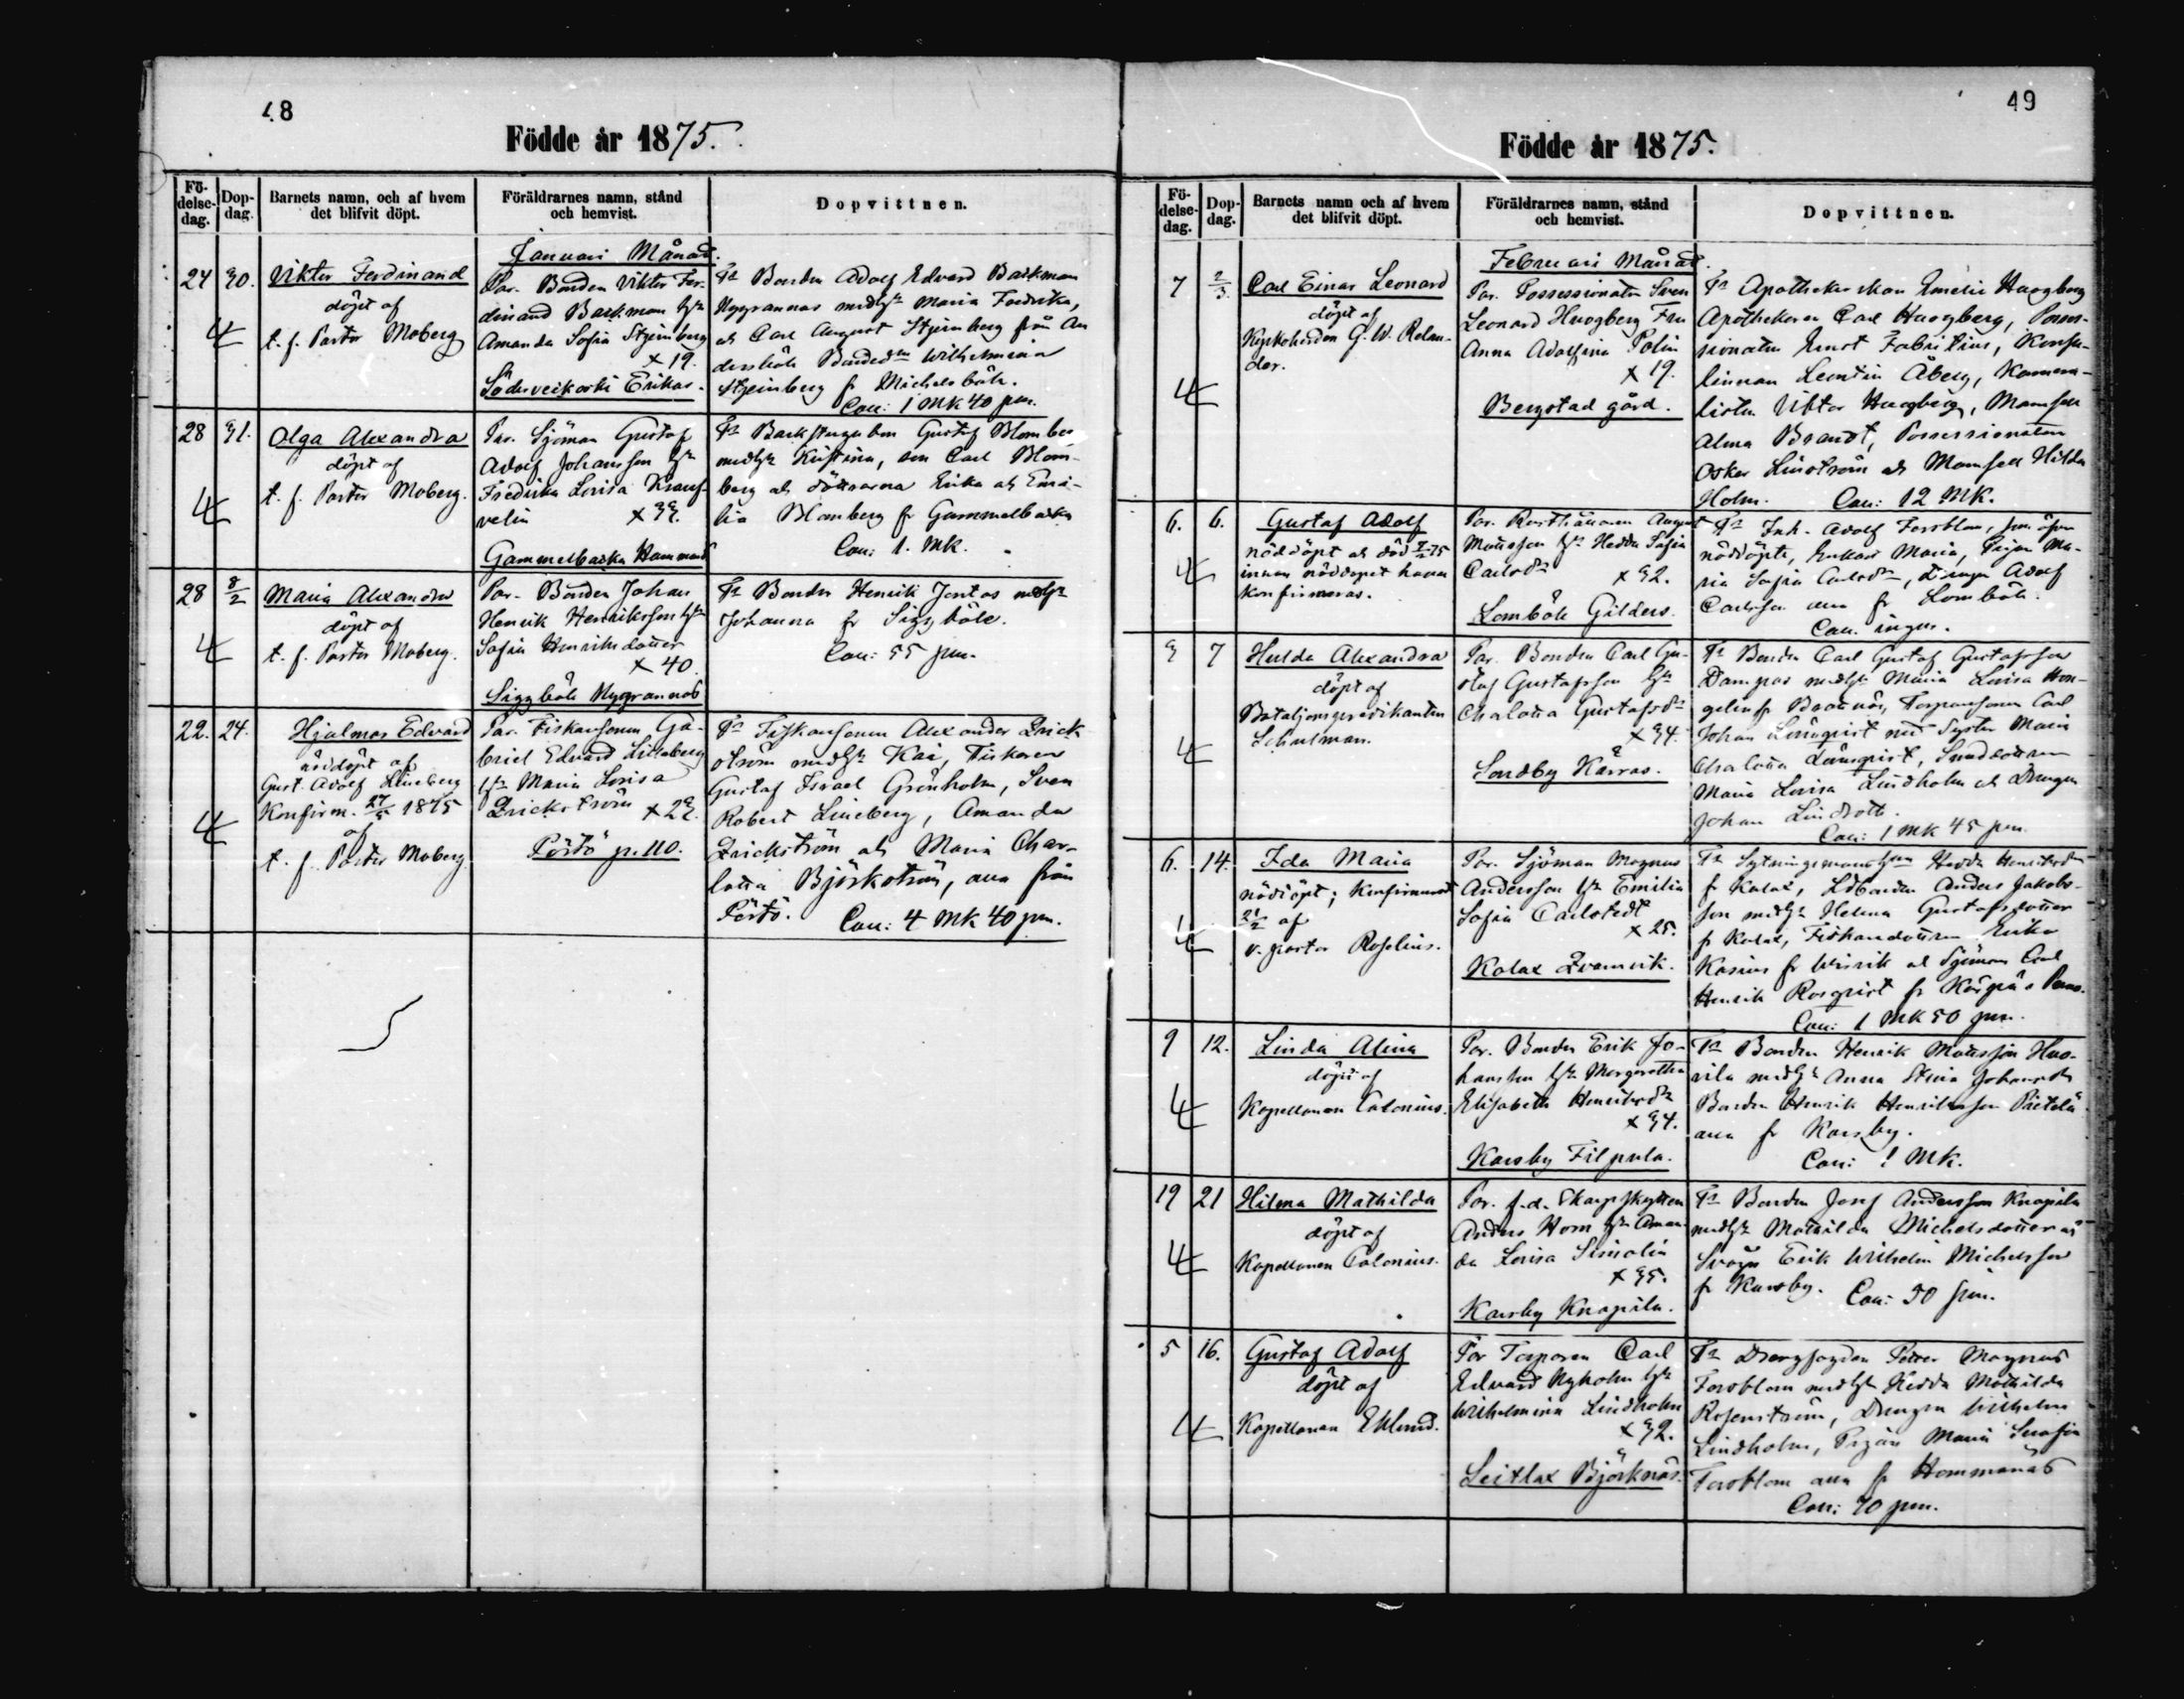 48
Födde år 1875.
Fö-
delse-
dag.
Dop-
dag.
Barnets namn, och af hvem
det blifvit döpt.
Föräldrarnes namn, stånd
och hemvist.
Dopvittnen.
Januari Månad.
24 30.
Viktor Ferdinand
döpt af
t. f. Pastor Moberg
Par. Bonden Viktor Fer-
dinand Backman hst
Amanda Sofia Stjernberg
x 19.
Söderveckoski Erikas.
Ft Bonden Adolf Edvard Backman
Nygrannas medhst Maria Fredrika,
och Carl August Stjernberg från An
dersböle Bondedtn Wilhelmina
Stjernberg fr Michelsböle.
Coll: 1 Mk 40 pen.
28 31.
Olga Alexandra
döpt af
t. f. Pastor Moberg.
Par. Sjöman Gustaf
Adolf Johansson hst
Fredrika Lovisa
velin x 33.
Gammelbacka Hammars
Ft Backstugubon Gustaf Blomberg
medhst Kristina, son Carl Blom-
berg och döttrarna Erika och Emi-
lia Blomberg fr Gammelbacka
Coll: 1. Mk.
28 8/2
Maria Alexandra
döpt af
t. f. Pastor Moberg.
Par. Bonden Johan
Henrik Henriksson hst
Sofia Henriksdotter
x 40
Siggböle Nygrannas
Ft Bonden Henrik Jontas medhst
Johanna fr Siggböle.
Coll: 55 pen.
22. 24.
Hjalmar Edvard
nöddöpt af
Gust. Adolf Lineberg
Konfirm. 27/5 1875
af
t. f. Pastor Moberg
Par. Fiskarsonen Ga-
briel Edvard Lilleberg
hst Maria Lovisa
Erickström x 23.
Pörtö p. 110.
Ft Fiskarsonen Alexander Erick
ström medhst Kai, Fiskaren
Gustaf Israel Grönholm, Sven
Robert Lineberg, Amanda
Erickström och Maria Char-
lotta Björkström, alla från
Pörtö. Coll: 4 Mk 40 pen.
49
Födde år 1875.
Fö-
delse-
dag.
Dop-
dag.
Barnets namn och af hvem
det blifvit döpt.
Föräldrarnes namn, stånd
och hemvist.
Dopvittnen.
Februari Månad.
7 2/3
Carl Einar Leonard
döpt af
Kyrkoherden G. W. Relan-
der.
Par. Possessionaten Sven
Leonard Huogberg Fru
Anna Adolfina Polin
x 19.
Bergstad gård.
Ft Apothekerskan Emelie Huogberg
Apothekaren Carl Huogberg, Posses-
sionaten Ernst Fabritius, Konsu-
linnan Leontin Åberg,
Viktor Huogberg, Mamsell
Alma Brandt, Possessionaten
Oskar Lindström och Mamsell Hilda
Holm. Coll: 12 Mk.
6. 6.
Gustaf Adolf
nöddöpt och död 7/2 75
innan nöddopet hann
konfirmeras.
Par. August
Mattsson hst Hedda Sofia
Carlsdtr x 32.
Lomböle Gilders.
Ft Inh. Adolf Forsblom, som äfven
nöddöpte, Enkan Maria, Pigan Ma-
ria Sofia Carlsdtr, Drengen Adolf
Carlsson alla fr Lomböle.
Coll. ingen.
3 7
Hulda Alexandra
döpt af
Bataljonspredikanten
Schulman.
Par. Bonden Carl Gu-
staf Gustafsson hst
Charlotta Gustafsdtr
x 34.
Sondby Karras.
Ft Bonden Carl Gustaf Gustafsson
Dampas medhst Maria Lovisa
fr Brattnäs, Torparsonen Carl
Johan Lönnqvist med Syster Maria
Charlotta Lönnqvist,
Maria Lovisa Lindholm och Drengen
Johan Lindroth.
Coll: 1 Mk 45 pen.
6. 14.
Ida Maria
nöddöpt; Konfirmerad
21/2 af
v. pastor Roselius.
Par. Sjöman Magnus
Andersson hst Emilia
Sofia Carlstedt
x 25.
Kalax Evamvik.
Ft Sytningsmanshustrun Hedda Henriksdtr
fr Kalax, Ldbonden Anders Jakobs-
son medhst Helena Gustafsdotter
fr Kalax, Fiskaredottren Erika
Kasius fr och Sjöman Carl
Henrik Rosqvist fr
Coll: 1 Mk 50 pen.
9 12.
Linda Alina
döpt af
Kapellanen Calonius.
Par. Bonden Erik Jo-
hansson hst Margaretha
Elisabeth Henriksdtr
x 34.
Karsby Filpula.
Ft Bonden Henrik Mattsson Huo-
vila medhst Anna Stina Johansdtr
Bonden Henrik Henriksson Pietilä
alla fr Karsby.
Coll: 1 Mk.
19 21
Hilma Mathilda
döpt af
Kapellanen Calonius.
Par. f.d. Skarpskytten
Anders Horn hst Aman-
da Lovisa Simolin
x 35.
Karsby Knapila.
Ft Bonden Josef Andersson Knapila
medhst Mathilda Michelsdotter och
Svågern Erik Wilhelm Michelsson
fr Karsby. Coll: 50 pen.
5 16.
Gustaf Adolf
döpt af
Kapellanen Eklund.
Par Torparen Carl
Edvard Nyholm hst
Wilhelmina Lindholm
x 32.
Seitlax Björknäs.
Ft Drengfogden Petter Magnus
Forsblom medhst Hedda Mathilda
Rosenström, Drengen Wilhelm
Lindholm, Pigan Maria Serafia
Forsblom alla fr Hommanäs
Coll: 70 pen.